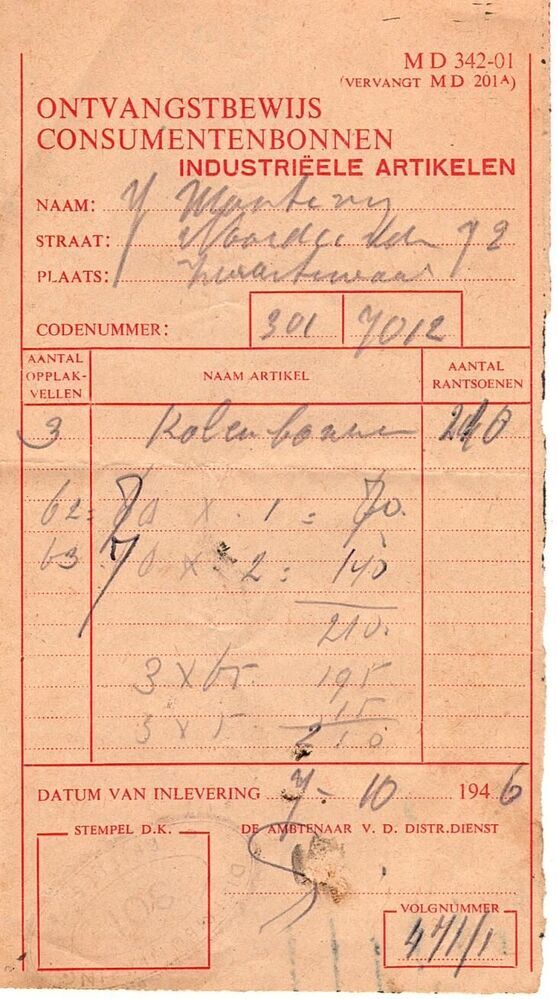 MD 342-01
(VERVANGT MD 201A)
ONTVANGSTBEWIJS
CONSUMENTENBONNEN
INDUSTRIËELE ARTIKELEN
NAAM:
STRAAT: 72
PLAATS:
CODENUMMER: 301 7012
AANTAL OPPLAK-VELLEN NAAM ARTIKEL AANTAL RANTSOENEN
3 Kolenbonnen 210
62 = 70 x 1 = 70.
63 70 x 2 = 140
210.
3 x 65 195
3 x 5 15
210
DATUM VAN INLEVERING 7-10 1946
STEMPEL D.K. DE AMBTENAAR V. D. DISTR.DIENST
301
VOLGNUMMER
471/1